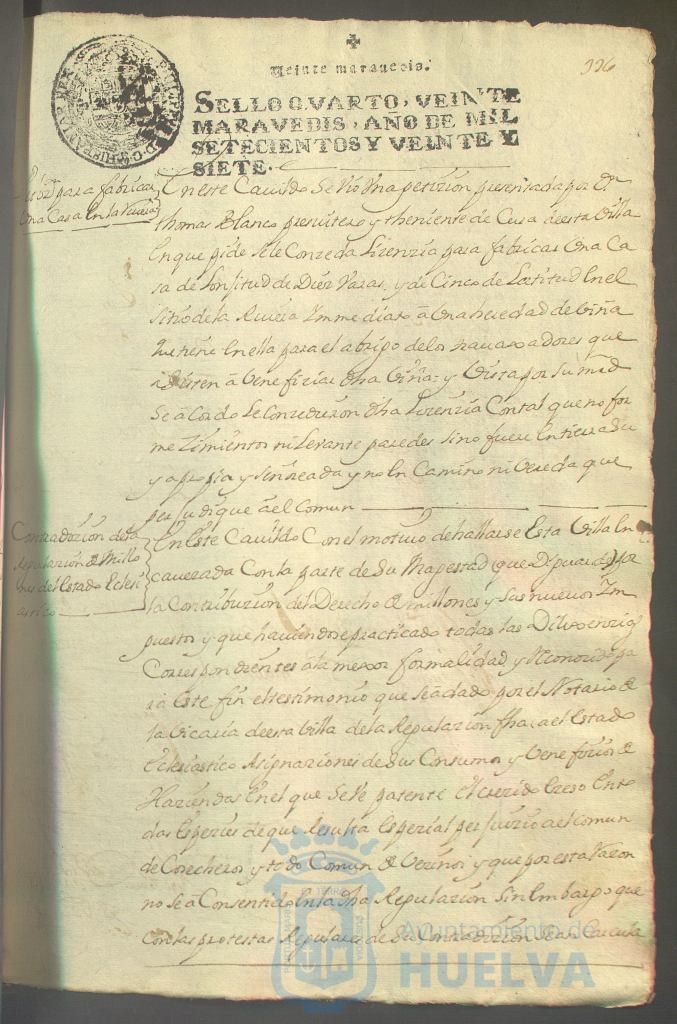 Veinte maravedis.
336
SELLO QVARTO, VEINTE
MARAVEDIS, AÑO DE MIL
SETECIENTOS Y VEINTE Y
SIETE.
para fabricar
Una Casa en la
En este Cavildo se vio Una petizion presentada por Dn
thomas Blanco presvitero y theniente de Cura de esta Villa
En que pide se le Conzeda Lizenzia para fabricar Una Ca
sa de Lonjitud de Diez Varas, y de Cinco de Latitud En el
sitio de la Rivera Ymmediato â Una heredad de Viña
que tiene En ella para el abrigo de los travaxadores que
asisten â Venefiziar dha Viña; y Vista por su mrd
Se âcordo le Conzedieron dha Lizenzia Contal que no for
me Zimientos ni Levante paredes sino fuere En tierra Su
ya propia y Señoreada y no En Camino ni Vereda que
perjudique âel Comun
Contradizion de la
Regulazion de Millo
nes del Estado Ecleci
astico
En Este Cavildo Con el motivo de hallarse Esta Villa En
cavezada Con la parte de Su Magestad (que Dios guarde) por
la Contribuzion del Derecho de millones y Sus nuevos Im
puestos y que haviendose practicado todas las Dilixenzias
Correspondientes â la mexor formalidad y Reconozido pa
ra Este fin el testimonio que se a dado por el Notario de
la Vicaria de esta Villa de la Regulazion fha a el Estado
Eclesiastico Asignaziones de Sus Consumos y Venefizios de
Haziendas En el que Se Ve patente el crezido Exceso En to
das Espezies de que Resulta Espezial perjuizio a el Comun
de Cosecheros y todo Comun de Vezinos y que por esta Razon
no Se a Consentido En la dha Regulazion Sin Embargo que
Con las protestas Regulares de Su Contradizion
Ayuntamiento de
HUELVA